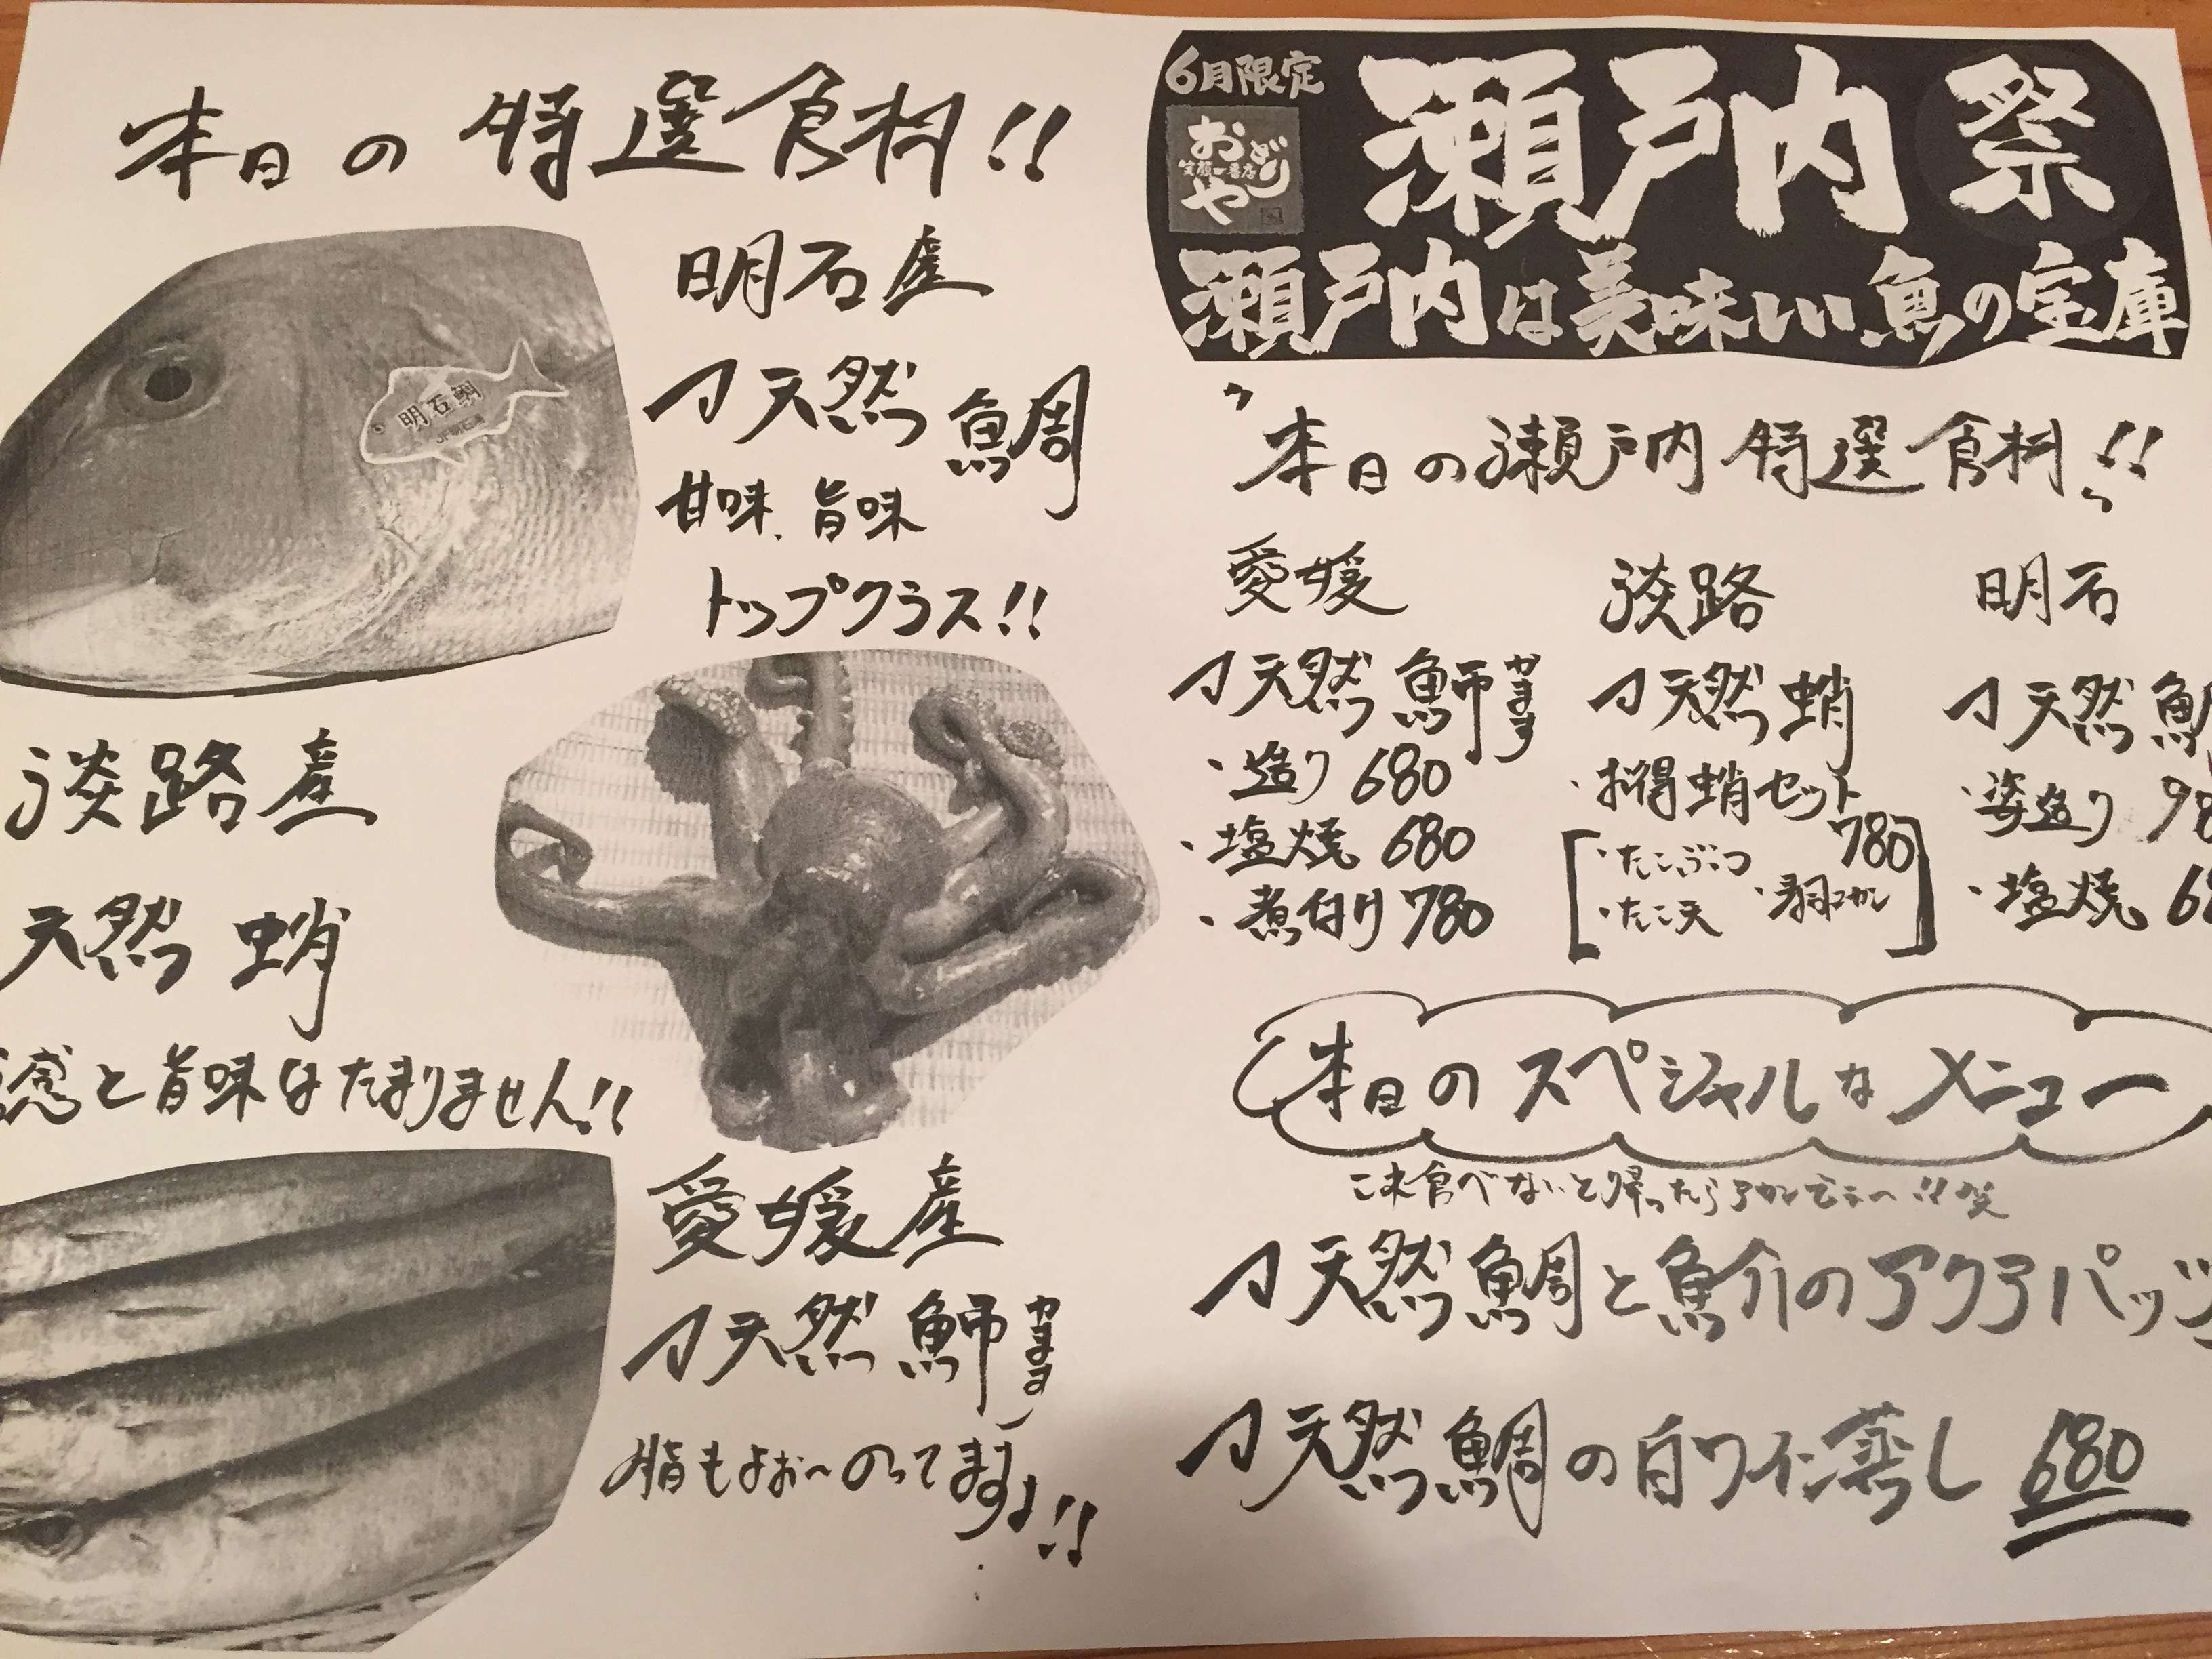 本日の特選食材!!
明石産
天然鯛
甘味、旨味
トップクラス!!
明石鯛
淡路産
天然 蛸
感と旨味はたまりません!!
愛媛産
天然 魳 かます
脂もよお〜のってますよ!!
6月限定
おどりや
笑顔一番店
瀬戸内祭
瀬戸内は美味しい魚の宝庫
"本日の瀬戸内特選食材!!"
愛媛
天然 魳 かます
・造り 680
・塩焼 680
・煮付け 780
淡路
天然 蛸
・お得蛸セット
780
・たこぶつ
・たこ天
明石
天然
・姿造り
・塩焼
本日のスペシャルなメニュー
これ食べないと帰ったらアカンでぇ〜!!笑
天然鯛と魚介のアクアパッツ
天然鯛の白ワイン蒸し 680